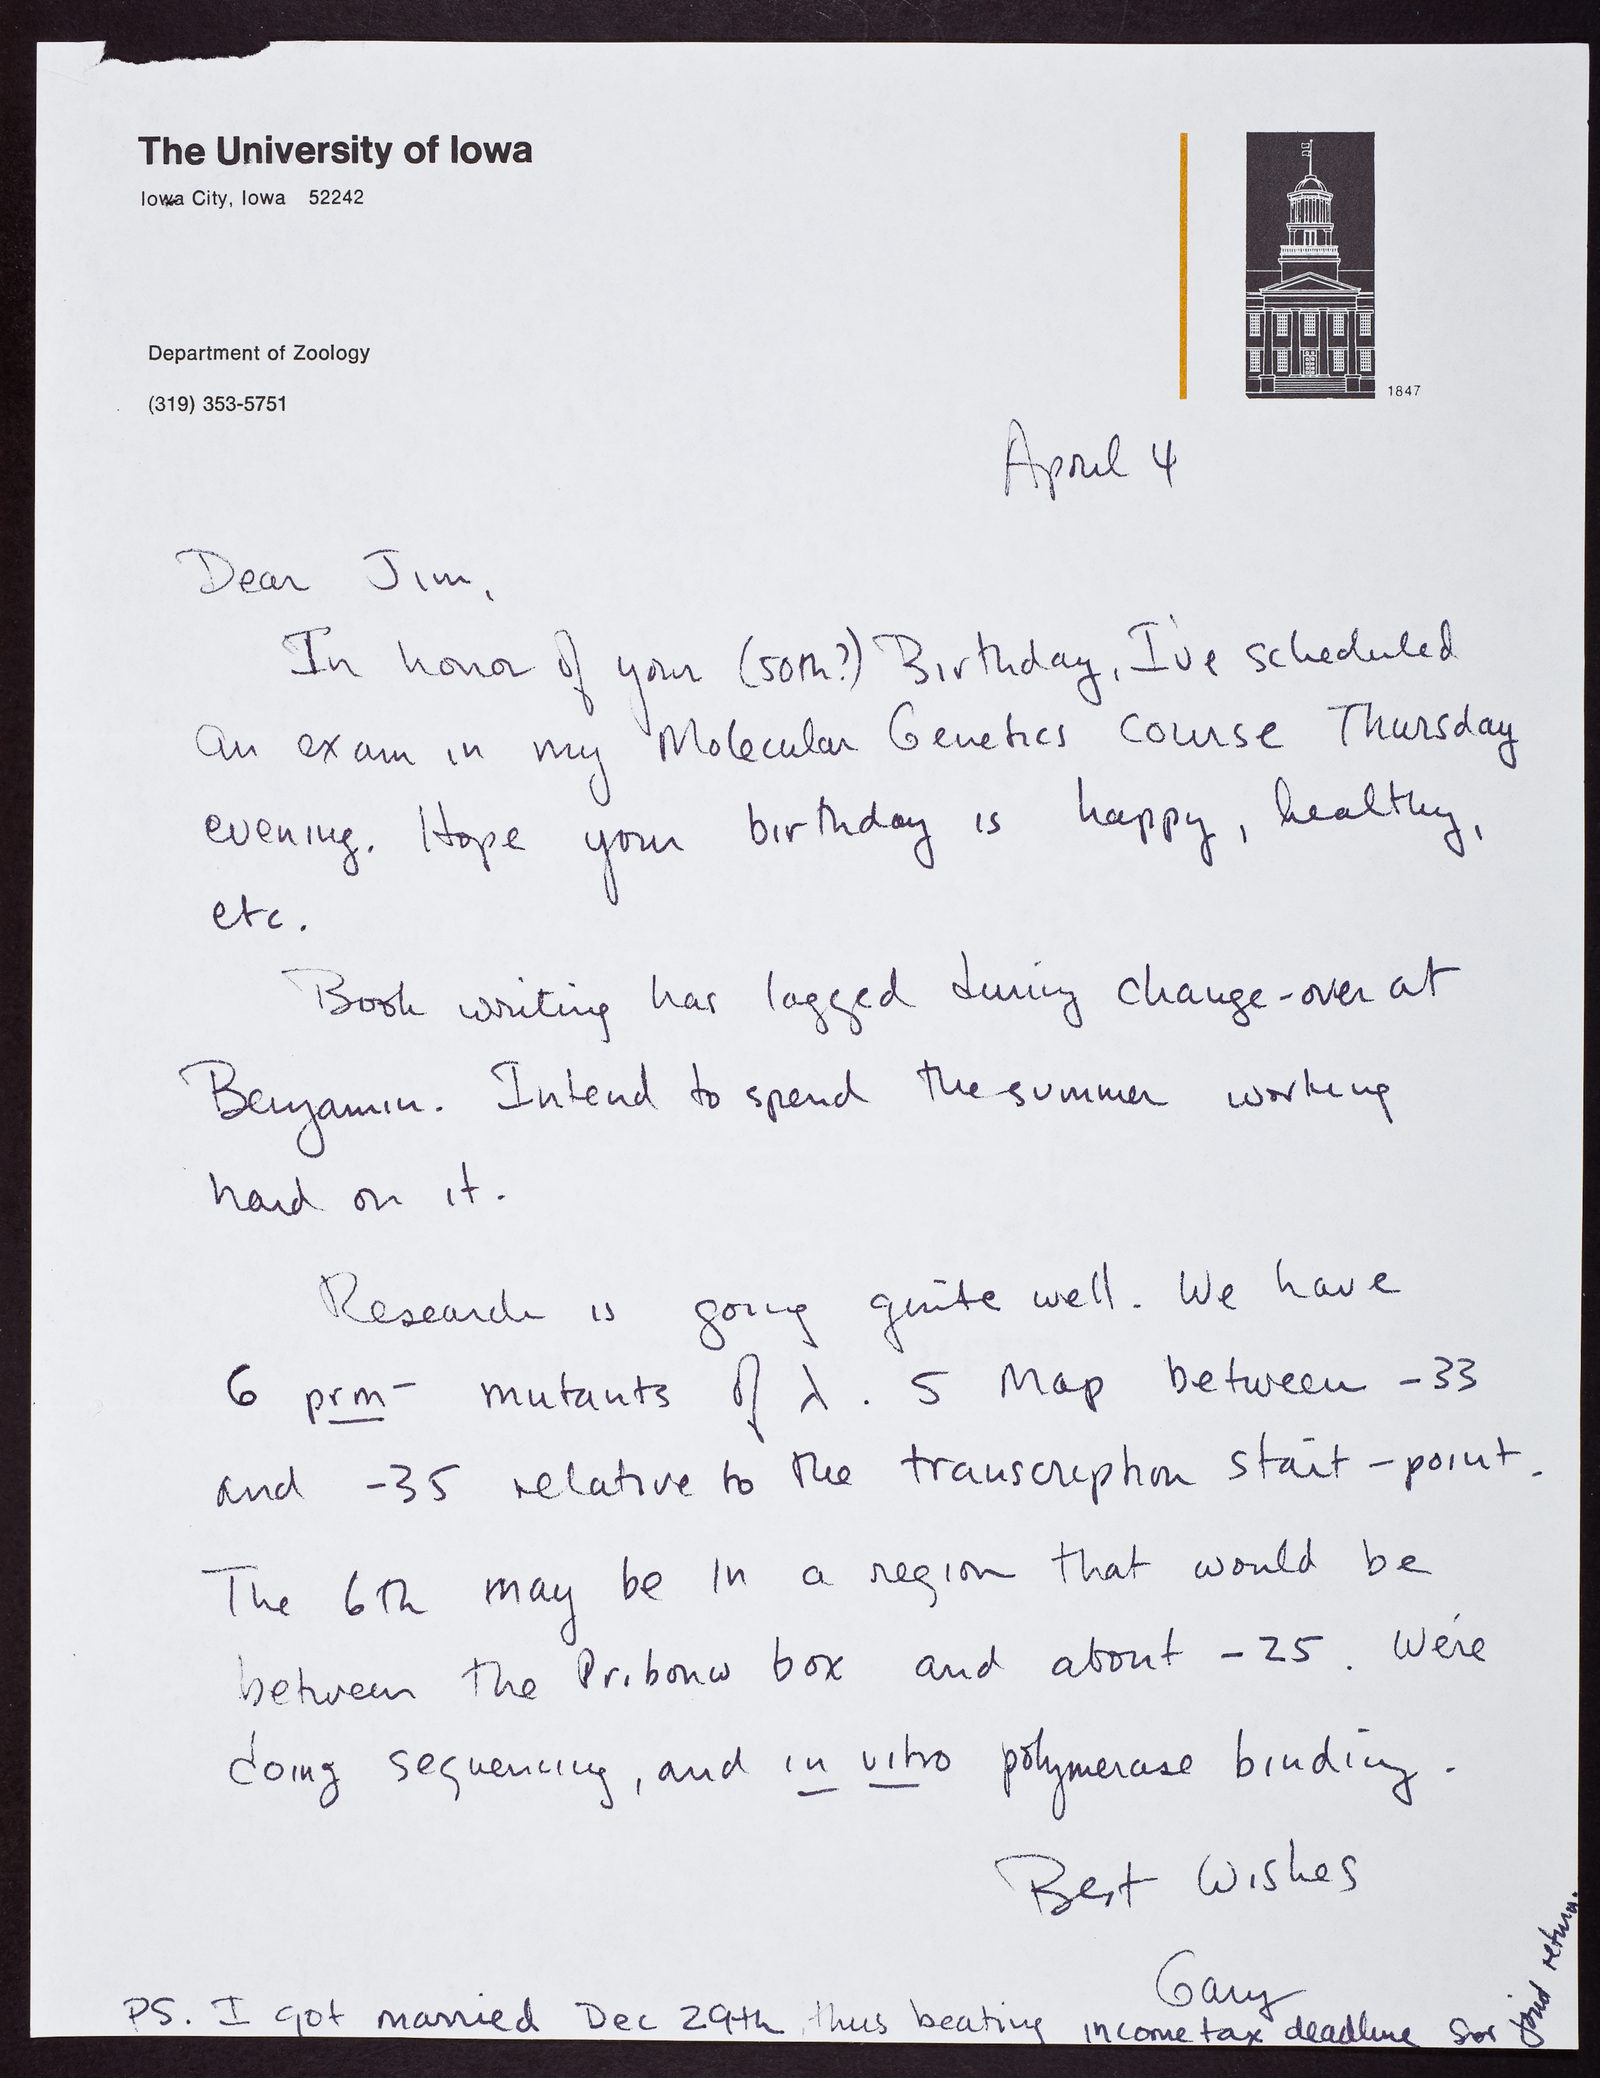 The University of Iowa
Iowa City, Iowa 52242
Department of Zoology
(319) 353-5751
1847
April 4
Dear Jim,
In honor of your (50th?) Birthday, I've scheduled
an exam in my Molecular Genetics course Thursday
evening. Hope your birthday is happy, healthy,
etc.
Book writing has lagged during change-over at
Benjamin. Intend to spend the summer working
hard on it.
Research is going quite well. We have
6 prm- mutants of λ. 5 map between -33
and -35 relative to the transcription start-point.
The 6th may be in a region that would be
between the Pribonw box and about -25. We're
doing sequencing, and in vitro polymerase binding.
Best Wishes
Gary
PS. I got married Dec 29th, thus beating income tax deadline for joint return.